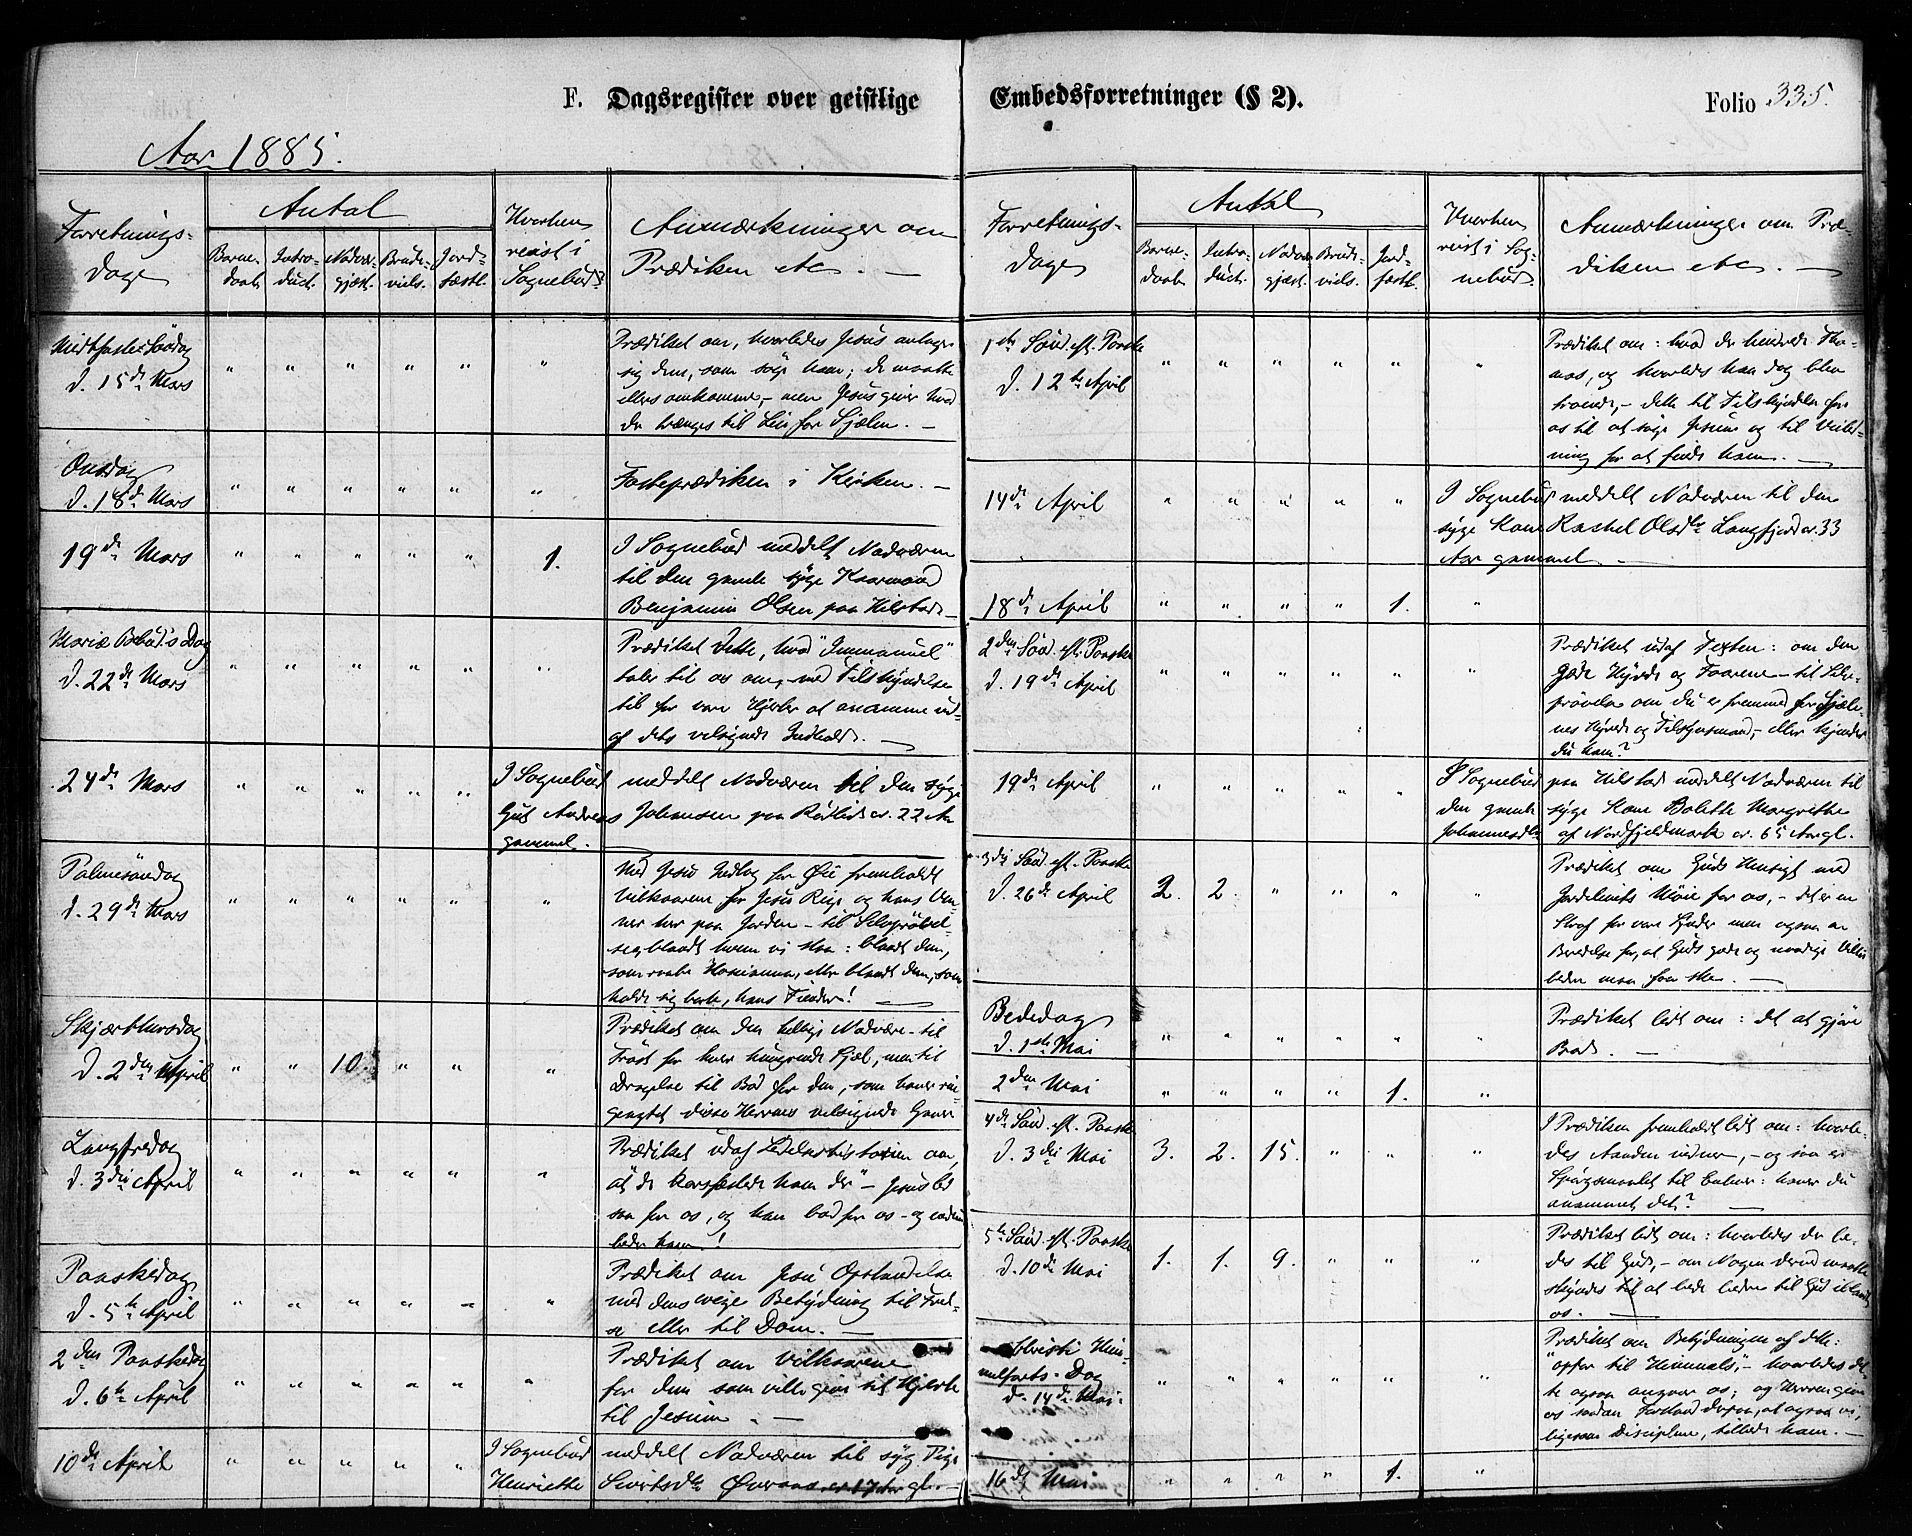 F. Dagsregister over geistlige Embedsforretninger (§ 2).
Folio 335.
Aar 1885.
Forretnings-
Dage
Antal
Barne-
daab.
Intro-
duct.
Nadver-
gjæst.
Brude-
viels.
Jord-
fæstl.
Hvorhen
reist i
Sognebud?
Anmærkninger om
Prædiken etc. —
Midtfaste Søndag
d. 15de Mars
" " " " " "
Prædiket om, hvorledes Jesus antager
sig dem, som søge ham; de maatte
ellers omkomme, - men Jesus giver hvad
der trænges til Liv for Sjælen. —
Onsdag
d. 18de Mars
" " " " " "
Fasteprædiken i Kirken. —
19de Mars
" " " " " 1.
I Sognebud meddelt Nadveren
til den gamle syge Kaarmand
Benjamin Olsen paa Hilstad —
Mariæ Bebud.s Dag
d. 22de Mars
" " " " " "
Prædiket dette, hvad "Immanuel"
taler til os om, - med Tilskyndelse
til for vore Hjerter at anamme
af dets velsignede Indhold. —
24de Mars
" " " " "
I Sognebud meddelt Nadveren til den syge
Gut Andreas Johansen paa 22 Aar
gammel. —
Palmesøndag
d. 29de Mars
" " " " " "
Med Jesu Indtog for Øie fremholdt
Vilkaarene for Jesu Rige og hans Ven-
ner her paa Jorden - til Selvprøvel-
se blandt hvem vi staa: blandt dem,
som raabe Hosianna, eller blandt dem, som
holde sig borte, hans Fiender! —
Skjærthorsdag
d. 2den April
" " 10. " " "
Prædiket om den hellige Nadvere - til
Trøst for hver hungrende Sjæl, men til
Dragelse til Bod for den, som haver rin-
geagtet disse Herrens velsignede Gaver
Langfredag
d. 3die April
" " " " " "
Prædiket udaf Lidelseshistorien om,
"at de korsfæstede ham der" - Jesus led
saa for os, og han bad for os - og
beder ham!
Paaskedag
d. 5te April
" " " " " "
Prædiket om Jesu Opstandelse
med dens evige Betydning til
eller til Dom. —
2den Paaskedag
d. 6te April
" " " " " "
Prædiket om Vilkaarene
for dem som ville give sit Hjerte
til Jesum. —
10de April
" " " " "
I Sognebud meddelt Nadveren til syg Pige
Henriette Sivertsdtr Øveraas er 17 Aar gl. —
Forretnings-
Dage
Antal
Barne-
daab
Intro-
duct.
Nadver-
gjæst.
Brude-
viels.
Jord-
fæstl.
Hvorhen
reist i Sog-
nebud.
Anmærkninger om Præ-
diken etc. —
1ste Sønd. eft. Paaske
d. 12te April
" " " " " "
Prædiket om: hvad der hindrede Tho-
mas, og hvorledes han dog blev
troende, - dette til Tilskyndelse for
os til at søge Jesum og til Veiled-
ning for at finde ham. —
14de April
" " " " "
I Sognebud meddelt Nadveren til den
syge Kone Rachel Olsdtr Langfjord er 33
Aar gammel —
18de April
" " " " 1. "
2den Sønd. eft. Paaske
d. 19de April
" " " " " "
Prædiket udaf Texten: om den
gode Hyrde og Faarene - til Selv-
prøvelse om du er fremmed for Sjæle-
nes Hyrde og Tilsynsmand, - eller kjender
du ham?
19de April
" " " " "
I Sognebud paa Hilstad meddelt Nadveren til
den gamle syge Kone Bolette Margrethe
Johannesdtr af Nordfjeldmark er 65 Aar gl.
3die Sønd. eft. Paaske
d. 26de April
2. 2. " " " "
Prædiket om Guds Hensigt med
Jordelivets Møie for os, - det er en
Straf for vore Synder men ogsaa en
Beredelse for, at Guds gode og naadige Villie
bedre maa faa ske. —
Bededag
d. 1ste Mai
" " " " " "
Prædiket lidt om: det at gjøre
Bod. —
2den Mai
" " " " 1. "
4de Sønd. eft. Paaske
d. 3die Mai
3. 2. 15. " " "
I Prædiken fremholdt lidt om: hvorle-
des Aanden vidner, - og saa er
Spørgsmaalet til Enhver: haver du
anammet det? —
5te Sønd. eft. Paaske
d. 10de Mai
1. 1. 9. " " "
Prædiket lidt om: hvorledes der be-
des til Gud, - om Nogen derved maatte
skyndes til at bede bedre til Gud iblandt
os. —
Christi Him-
melfarts-Dag
d. 14de Mai.
" " " " " "
Prædiket om Betydningen af dette:
"opfor til Himmels", - hvorledes det-
te ogsaa angaar os; og Herren give
os saadan Forstand derpaa, at ogsaa vi,
ligesom Disciplene, tilbede ham. —
16de Mai
" " " " 1. "